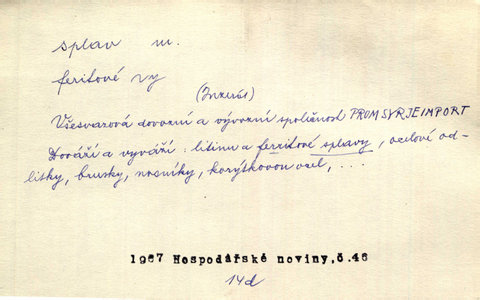 splav m.
feritové vy
(Inzerát)
Všesvazová dovozní a vývozní společnost PROMSYRJEIMPORT
Dováží a vyváží: litinu a feritové splavy, ocelové od-
litky, brusky, nosníky, korýtkovou ocel, ...
1967 Hospodářské noviny,č.46
14d